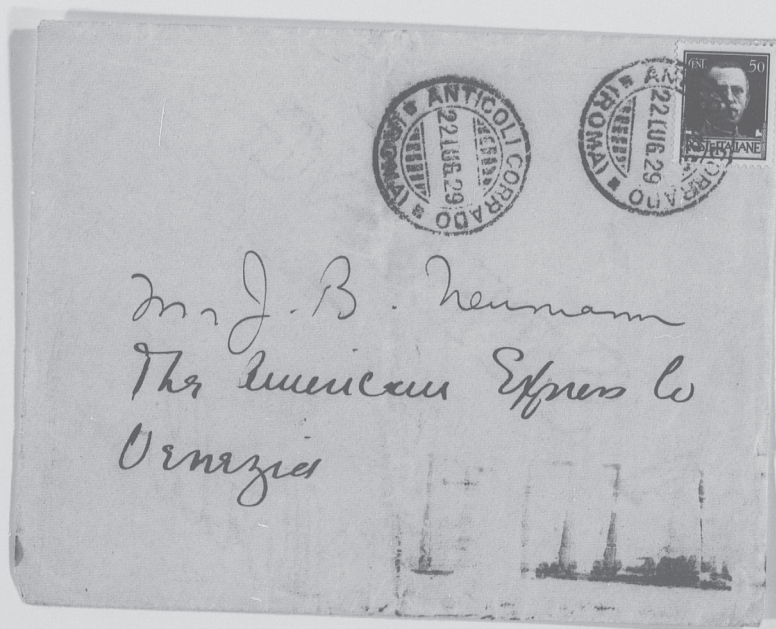 ANTICOLI CORRADO (ROMA)
22 LUG. 29
ANTICOLI CORRADO (ROMA)
22 LUG 29
CENT 50
POSTE ITALIANE
Mr J. B. Neumann
The American Express Co
Venezia